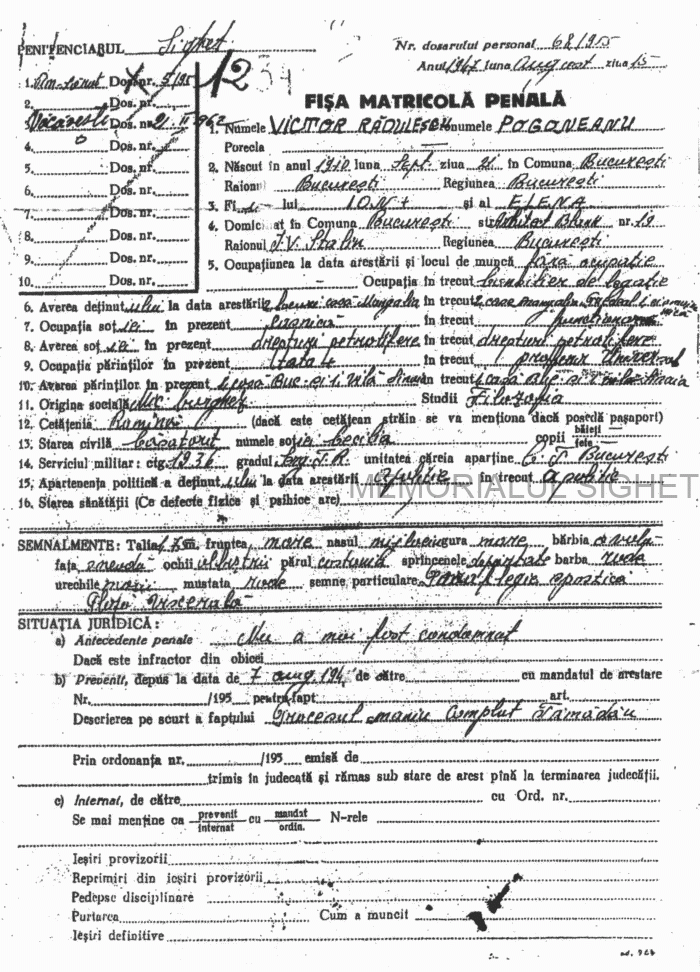 PENITENCIARUL Sighet
Nr. dosarului personal 68/955
Anul 1947 luna August ziua 15
1. Dos. nr.
2. Dos. nr.
Văcărești Dos. nr. 21. II 962
4. Dos. nr.
5. Dos. nr.
6. Dos. nr.
7. Dos. nr.
8. Dos. nr.
9. Dos. nr.
10. Dos. nr.
12
FIȘA MATRICOLĂ PENALĂ
1. Numele VICTOR RĂDULESCU numele POGONEANU
Porecla
2. Născut în anul 1910 luna Sept. ziua 21 în Comuna București
Raionul București Regiunea București
3. Fi lui ION + și al ELENA
4. Domiciliat în Comuna București str. Blank nr. 19
Raionul I.V. Stalin Regiunea București
5. Ocupațiunea la data arestării și locul de muncă fără ocupație
Ocupația în trecut consilier de legație
6. Averea deținutului la data arestării în trecut
7. Ocupația soției în prezent casnică în trecut funcționară
8. Averea soției în prezent drepturi petrolifere în trecut drepturi petrolifere
9. Ocupația părinților în prezent tata + în trecut profesor
10. Averea părinților în prezent 1 casă Buc. și 1 vilă Sinaia în trecut 1 casă Buc. și 1 vilă Sinaia
11. Origina socială burghez Studii Filozofia
12. Cetățenia Română (dacă este cetățean străin se va menționa dacă posedă pașaport)
13. Starea civilă căsătorit numele soției Cecilia copii băieți fete
14. Serviciul militar: ctg. 1932 gradul T.R. unitatea căreia aparține București
15. Apartenența politică a deținutului la data arestării apolitic în trecut apolitic
16. Starea sănătății (Ce defecte fizice și psihice are)
MEMORIALUL SIGHET
SEMNALMENTE: Talia fruntea mare nasul mijlociu gura mare bărbia ovală
fața smeadă ochii albaștrii părul castaniu sprîncenele depărtate barba rade
urechile mari mustata rade semne particulare
viscerală
SITUAȚIA JURIDICĂ:
a) Antecedente penale Nu a mai fost condamnat
Dacă este infractor din obicei
b) Prevenit, depus la data de 7 aug. 194 de către cu mandatul de arestare
Nr. /195 pentru fapt art.
Descrierea pe scurt a faptului Procesul Maniu Complot Tămădău
Prin ordonanța nr. /195 emisă de
trimis în judecată și rămas sub stare de arest pînă la terminarea judecății.
c) Internat, de către cu Ord. nr.
Se mai menține ca prevenit/internat cu mandat/ordin. N-rele
Ieșiri provizorii
Reprimiri din ieșiri provizorii
Pedepse disciplinare
Purtarea Cum a muncit
Ieșiri definitive